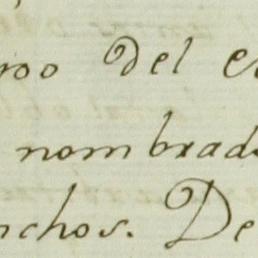 roo del e
nombrad
nchos. De